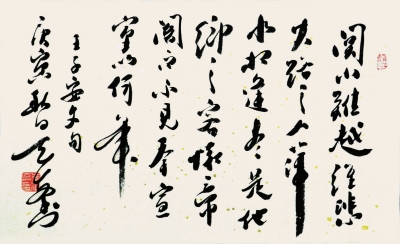 関山難越誰悲
失路之人萍
水相逢盡是他
鄉之客懷帝
閽而不見奉宣
室以何年
王子安文句
庚寅秋日